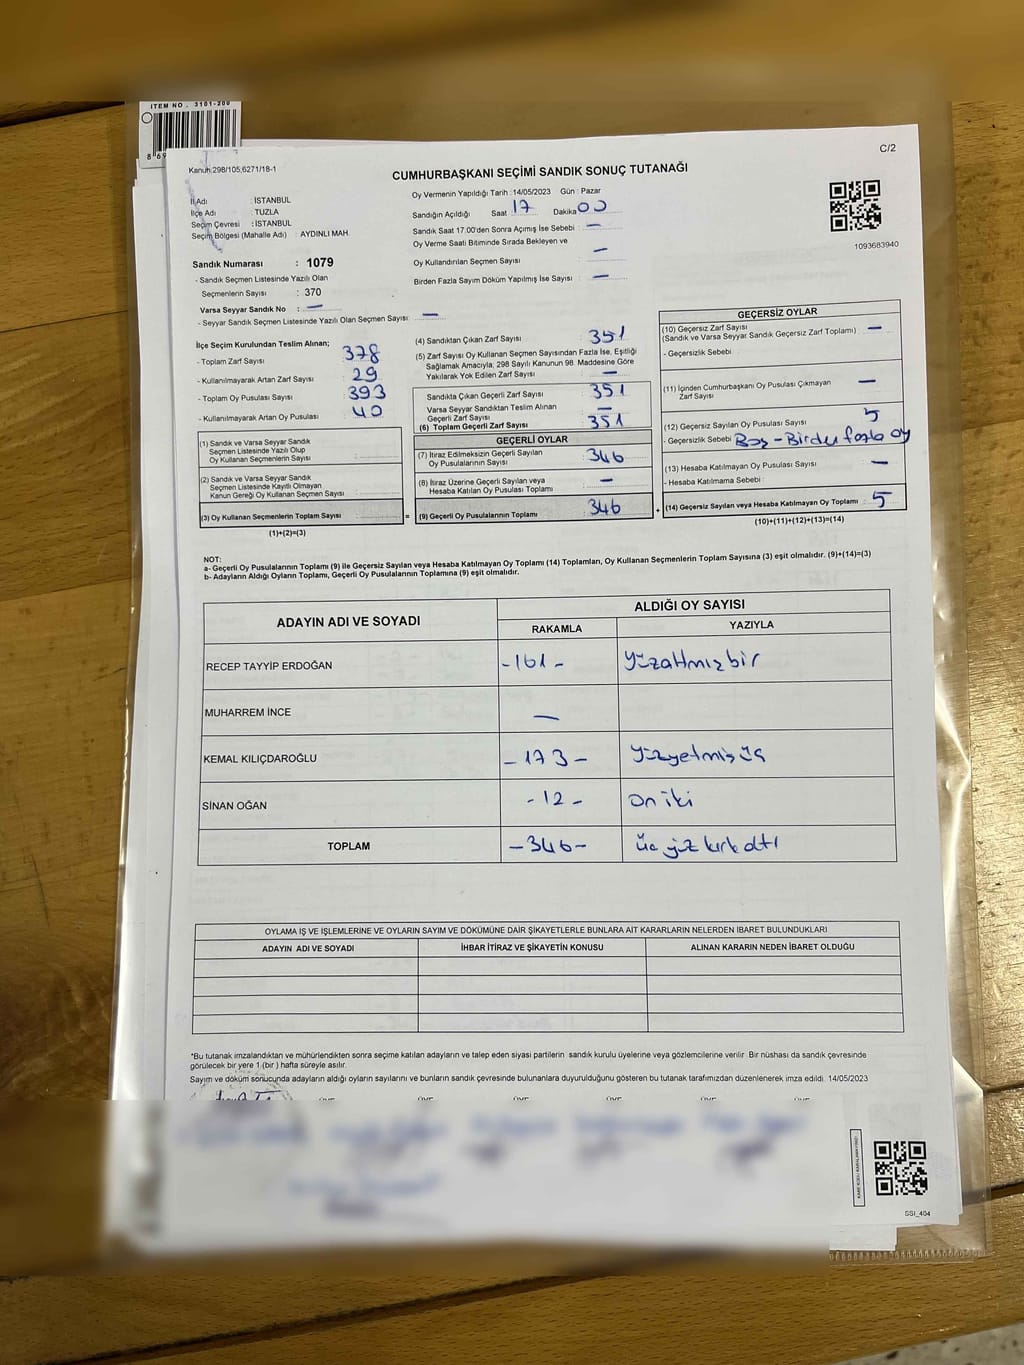 ITEM NO . 3101-200
Kanun:298/105,6271/18-1
C/2
CUMHURBAŞKANI SEÇİMİ SANDIK SONUÇ TUTANAĞI
İl Adı : İSTANBUL
İlçe Adı : TUZLA
Seçim Çevresi : İSTANBUL
Seçim Bölgesi (Mahalle Adı) : AYDINLI MAH.
Sandık Numarası : 1079
- Sandık Seçmen Listesinde Yazılı Olan
Seçmenlerin Sayısı : 370
Varsa Seyyar Sandık No : —
- Seyyar Sandık Seçmen Listesinde Yazılı Olan Seçmen Sayısı: —
Oy Vermenin Yapıldığı Tarih :14/05/2023 Gün : Pazar
Sandığın Açıldığı Saat 17 Dakika 00
Sandık Saat 17.00'den Sonra Açılmış İse Sebebi : —
Oy Verme Saati Bitiminde Sırada Bekleyen ve
Oy Kullandırılan Seçmen Sayısı : —
Birden Fazla Sayım Döküm Yapılmış İse Sayısı : —
1093683940
İlçe Seçim Kurulundan Teslim Alınan;
- Toplam Zarf Sayısı : 378
- Kullanılmayarak Artan Zarf Sayısı : 29
- Toplam Oy Pusulası Sayısı : 393
- Kullanılmayarak Artan Oy Pusulası : 40
(1) Sandık ve Varsa Seyyar Sandık
Seçmen Listesinde Yazılı Olup
Oy Kullanan Seçmenlerin Sayısı :
(2) Sandık ve Varsa Seyyar Sandık
Seçmen Listesinde Kayıtlı Olmayan
Kanun Gereği Oy Kullanan Seçmen Sayısı :
(3) Oy Kullanan Seçmenlerin Toplam Sayısı : =
(1)+(2)=(3)
(4) Sandıktan Çıkan Zarf Sayısı : 351
(5) Zarf Sayısı Oy Kullanan Seçmen Sayısından Fazla İse, Eşitliği
Sağlamak Amacıyla; 298 Sayılı Kanunun 98. Maddesine Göre
Yakılarak Yok Edilen Zarf Sayısı : —
Sandıkta Çıkan Geçerli Zarf Sayısı : 351
Varsa Seyyar Sandıktan Teslim Alınan
Geçerli Zarf Sayısı : —
(6) Toplam Geçerli Zarf Sayısı : 351
GEÇERLİ OYLAR
(7) İtiraz Edilmeksizin Geçerli Sayılan
Oy Pusulalarının Sayısı : 346
(8) İtiraz Üzerine Geçerli Sayılan veya
Hesaba Katılan Oy Pusulası Toplamı : —
(9) Geçerli Oy Pusulalarının Toplamı : 346 +
GEÇERSİZ OYLAR
(10) Geçersiz Zarf Sayısı : —
(Sandık ve Varsa Seyyar Sandık Geçersiz Zarf Toplamı)
- Geçersizlik Sebebi :
(11) İçinden Cumhurbaşkanı Oy Pusulası Çıkmayan : —
Zarf Sayısı
(12) Geçersiz Sayılan Oy Pusulası Sayısı : 5
- Geçersizlik Sebebi : Boş - Birden fazla oy
(13) Hesaba Katılmayan Oy Pusulası Sayısı : —
- Hesaba Katılmama Sebebi :
(14) Geçersiz Sayılan veya Hesaba Katılmayan Oy Toplamı : 5
(10)+(11)+(12)+(13)=(14)
NOT:
a- Geçerli Oy Pusulalarının Toplamı (9) ile Geçersiz Sayılan veya Hesaba Katılmayan Oy Toplamı (14) Toplamları, Oy Kullanan Seçmenlerin Toplam Sayısına (3) eşit olmalıdır. (9)+(14)=(3)
b- Adayların Aldığı Oyların Toplamı, Geçerli Oy Pusulalarının Toplamına (9) eşit olmalıdır.
ADAYIN ADI VE SOYADI ALDIĞI OY SAYISI
RAKAMLA YAZIYLA
RECEP TAYYİP ERDOĞAN -161- Yüzaltmışbir
MUHARREM İNCE —
KEMAL KILIÇDAROĞLU -173- Yüzyetmişüç
SİNAN OĞAN -12- on iki
TOPLAM -346- üç yüz kırk altı
OYLAMA İŞ VE İŞLEMLERİNE VE OYLARIN SAYIM VE DÖKÜMÜNE DAİR ŞİKAYETLERLE BUNLARA AİT KARARLARIN NELERDEN İBARET BULUNDUKLARI
ADAYIN ADI VE SOYADI İHBAR İTİRAZ VE ŞİKAYETİN KONUSU ALINAN KARARIN NEDEN İBARET OLDUĞU
*Bu tutanak imzalandıktan ve mühürlendikten sonra seçime katılan adayların ve talep eden siyasi partilerin sandık kurulu üyelerine veya gözlemcilerine verilir. Bir nüshası da sandık çevresinde
görülecek bir yere 1 (bir) hafta süreyle asılır.
Sayım ve döküm sonucunda adayların aldığı oyların sayılarını ve bunların sandık çevresinde bulunanlara duyurulduğunu gösteren bu tutanak tarafımızdan düzenlenerek imza edildi. 14/05/2023
SSI_404